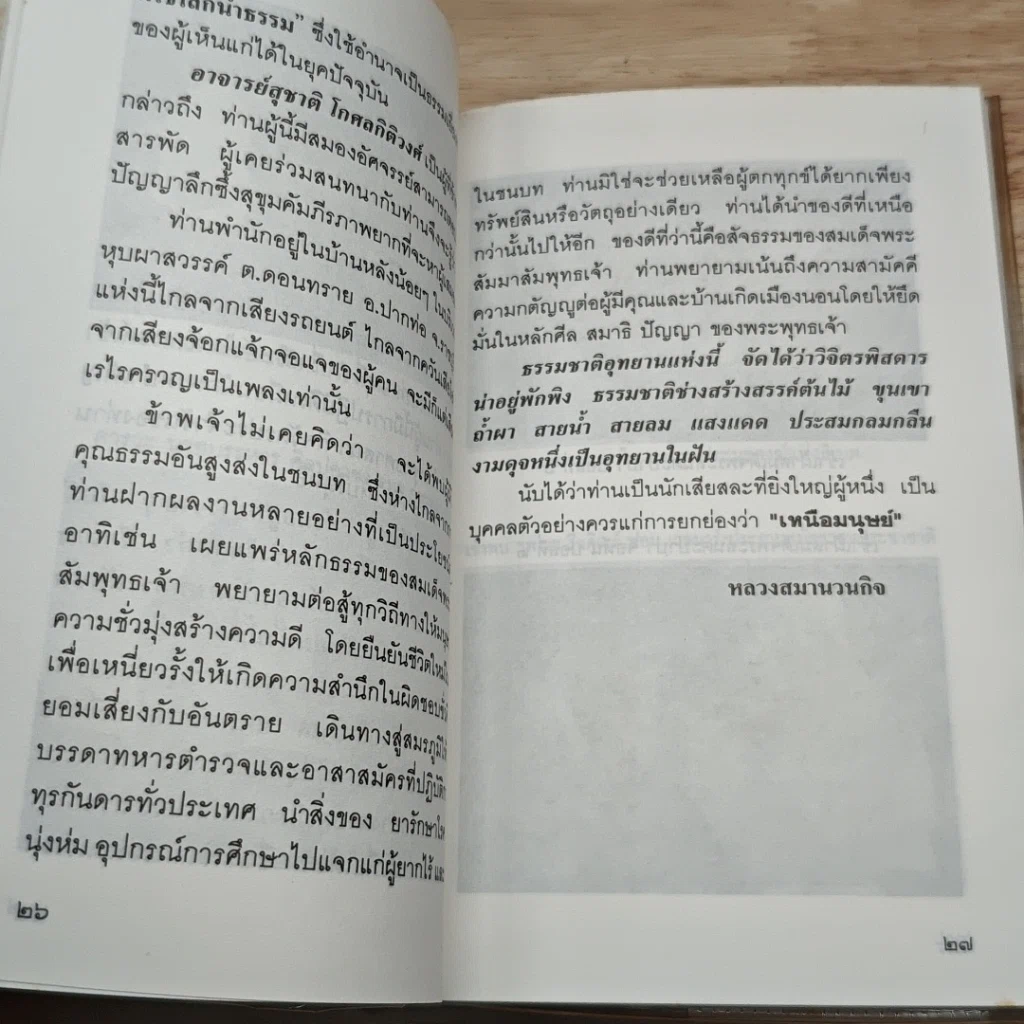 นำธรรม" ซึ่งใช้อำนาจเป็นธรรม
ของผู้เห็นแก่ได้ในยุคปัจจุบัน
อาจารย์สุชาติ โกศลกิติวงศ์ เป็นผู้ที่
กล่าวถึง ท่านผู้นี้มีสมองอัศจรรย์สามารถ
สารพัด ผู้เคยร่วมสนทนากับท่านจึงจะรู้
ปัญญาลึกซึ้งสุขุมคัมภีรภาพยากที่จะหาผู้
ท่านพำนักอยู่ในบ้านหลังน้อยๆ ใน
หุบผาสวรรค์ ต.ดอนทราย อ.ปากท่อ จ.ราช
แห่งนี้ไกลจากเสียงรถยนต์ ไกลจากควัน
จากเสียงจ้อกแจ้กจอแจของผู้คน จะมีก็แต่
เรไรครวญเป็นเพลงเท่านั้น
ข้าพเจ้าไม่เคยคิดว่า จะได้พบผู้
คุณธรรมอันสูงส่งในชนบท ซึ่งห่างไกลจาก
ท่านฝากผลงานหลายอย่างที่เป็นประโยชน์
อาทิเช่น เผยแพร่หลักธรรมของสมเด็จพระ
สัมพุทธเจ้า พยายามต่อสู้ทุกวิถีทางให้มนุษ
ความชั่วมุ่งสร้างความดี โดยยืนยันชีวิตใหม่
เพื่อเหนี่ยวรั้งให้เกิดความสำนึกในผิดชอบชั่ว
ยอมเสี่ยงกับอันตราย เดินทางสู่สมรภูมิ
บรรดาทหารตำรวจและอาสาสมัครที่ปฏิบัติ
ทุรกันดารทั่วประเทศ นำสิ่งของ ยารักษาโรค
นุ่งห่ม อุปกรณ์การศึกษาไปแจกแก่ผู้ยากไร้
๒๖
ในชนบท ท่านมิใช่จะช่วยเหลือผู้ตกทุกข์ได้ยากเพียง
ทรัพย์สินหรือวัตถุอย่างเดียว ท่านได้นำของดีที่เหนือ
กว่านั้นไปให้อีก ของดีที่ว่านี้คือสัจธรรมของสมเด็จพระ
สัมมาสัมพุทธเจ้า ท่านพยายามเน้นถึงความสามัคคี
ความกตัญญูต่อผู้มีคุณและบ้านเกิดเมืองนอนโดยให้ยึด
มั่นในหลักศีล สมาธิ ปัญญา ของพระพุทธเจ้า
ธรรมชาติอุทยานแห่งนี้ จัดได้ว่าวิจิตรพิสดาร
น่าอยู่พักพิง ธรรมชาติช่างสร้างสรรค์ต้นไม้ ขุนเขา
ถ้ำผา สายน้ำ สายลม แสงแดด ประสมกลมกลืน
งามดุจหนึ่งเป็นอุทยานในฝัน
นับได้ว่าท่านเป็นนักเสียสละที่ยิ่งใหญ่ผู้หนึ่ง เป็น
บุคคลตัวอย่างควรแก่การยกย่องว่า "เหนือมนุษย์"
หลวงสมานวนกิจ
๒๗